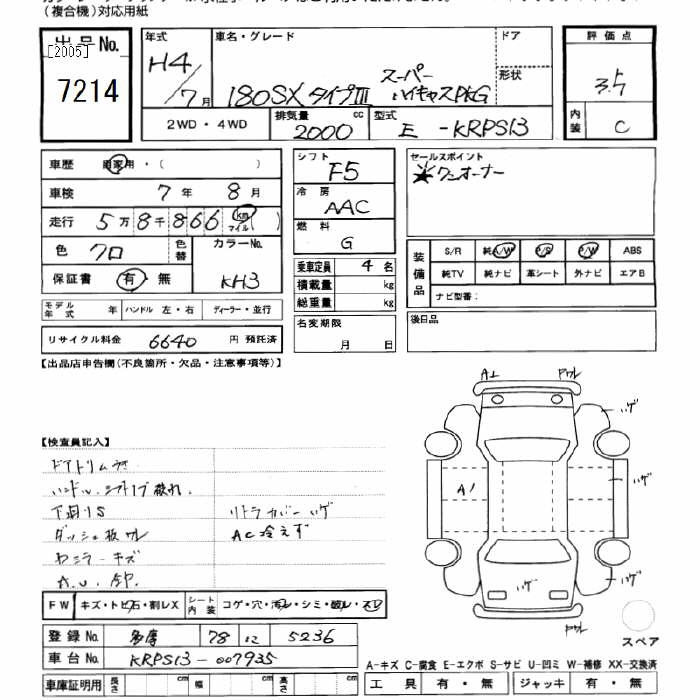 (複合機)対応用紙
出品No.
[2005]
7214
年式
H4/7月
車名・グレード
180SX タイプIII スーパーハイキャスPKG
ドア
形状
2WD・4WD
排気量
2000 cc
型式
E-KRPS13
評価点
3.5
内装
C
車歴 自家用・( )
車検 7年 8月
走行 5万8千866 km マイル ( )
色 クロ
色替
カラーNo.
KH3
保証書 有・無
モデル年式 年 ハンドル 左・右 ディーラー・並行
リサイクル料金 6640 円 預託済
シフト
F5
冷房
AAC
燃料
G
乗車定員 4 名
積載量 kg
総重量 kg
名変期限
月 日
セールスポイント
★ワンオーナー
装備品
S/R 純A/W P/S P/W ABS
純TV 純ナビ 革シート 外ナビ エアB
ナビ型番:
後日品
【出品店申告欄(不良箇所・欠品・注意事項等)】
【検査員記入】
ドアトリムキズ
ハンドル、シフトノブ破れ
下回りS
リトラカバーハゲ
ダッシュ板ワレ
AC冷えず
A1
ワレ
ハゲ
A1
ハゲ
ハゲ
ハゲ
ワレ
FW キズ・トビ石・割レX
シート内装 コゲ・穴・汚レ・シミ・破レ・スレ
登録No. 多摩 78 に 5236
車台No. KRPS13-007935
車庫証明用 長さ cm 幅 cm 高さ cm
スペア
A-キズ C-腐食 E-エクボ S-サビ U-凹ミ W-補修 XX-交換済
工具 有・無 ジャッキ 有・無